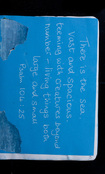 There is the sea,
vast and spacious,
teeming with creatures beyond
number - living things both
large and small
Psalm 104:25